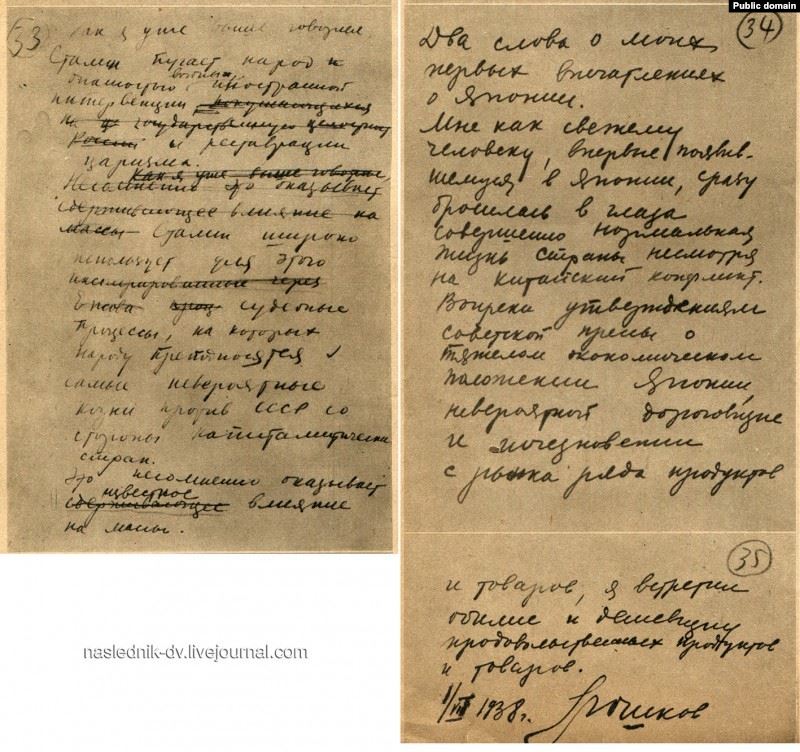 Public domain
33
как я уже выше говорил,
Сталин пугает народ и
опасностью военной иностранной
интервенции, покушающихся
на государственную целостность
России и реставрации
царизма.
Как я уже выше говорил
Несомненно это оказывает
сдерживающее влияние на
массы Сталин широко
использует для этого
инсценированные через
Ежова судебные
процессы, на которых
народу преподносятся
самые невероятные
козни против СССР со
стороны капиталистических
стран.
Это несомненно оказывает
известное
сдерживающее влияние
на массы.
34
Два слова о моих
первых впечатлениях
о Японии.
Мне как свежему
человеку, впервые появив-
шемуся в Японии, сразу
бросилась в глаза
совершенно нормальная
жизнь страны несмотря
на китайский конфликт.
Вопреки утверждениям
советской прессы о
тяжелом экономическом
положении Японии,
невероятной дороговизне
и исчезновении
с рынка ряда продуктов
35
и товаров, я встретил
обилие и дешевизну
продовольственных продуктов
и товаров.
1/VII 1938г. Люшков
naslednik-dv.livejournal.com